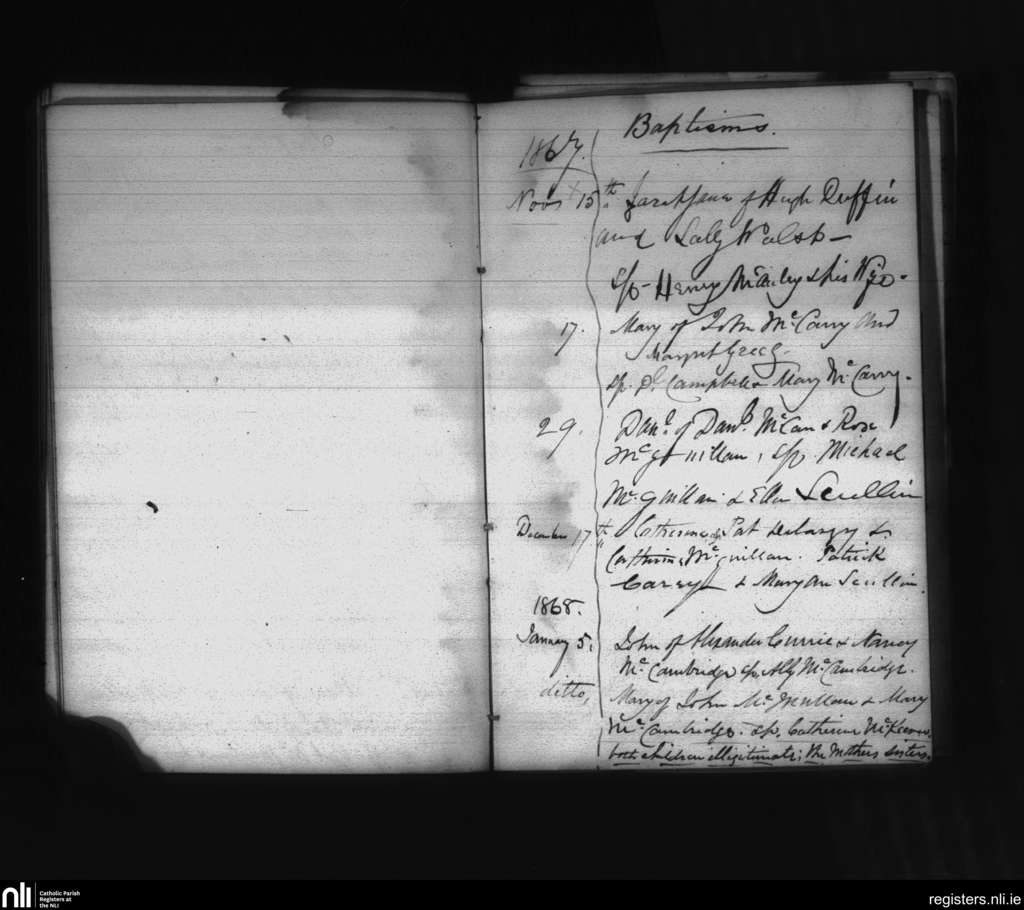 Baptisms.
1867.
Novr 15th Hugh Duffin
and Sally Walsh —
Sp- Henry McAuley & his Wife.
17. Mary of John McCarry and
Margret Gregg.
sp. Dl. Campbell & Mary McCarry.
29. Danl. of Danl. McCan & Rose
McQuillan, Sp. Michael
McQuillan & Ellen Scullin
December 17th Catherine of Pat Delargy &
Catherine McQuillan. Patrick
Carey & Mary Ann Scullin.
1868.
January 5, John of Alexander Currie & Nancy
McCambridge sp. Ally McCambridge.
ditto, Mary of John McMullan & Mary
McCambridge. sp. Catherine McKeown.
both children illigitimate; the Mothers sisters.
nli
Catholic Parish
Registers at
the NLI
registers.nli.ie